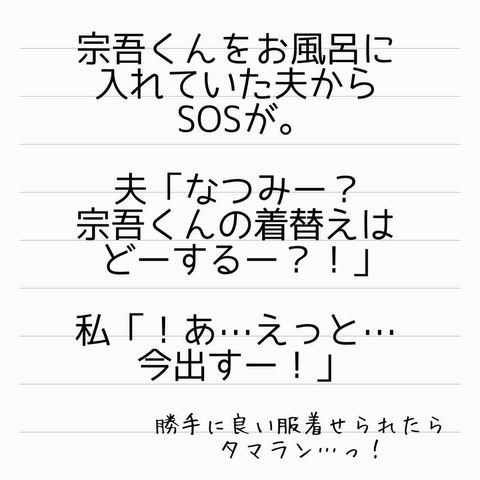 宗吾くんをお風呂に
入れていた夫から
SOSが。
夫「なつみー？
宗吾くんの着替えは
どーするー？！」
私「！あ…えっと…
今出すー！」
勝手に良い服着せられたら
タマラン…っ！